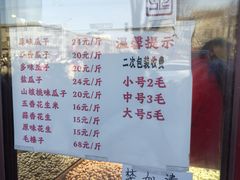 原味瓜子 24元/斤
20元/斤
多味瓜子 20元/斤
盐瓜子 24元/斤
山核桃味瓜子 20元/斤
五香花生米 16元/斤
蒜香花生 15元/斤
原味花生 15元/斤
毛榛子 68元/斤
温馨提示
二次包装收费
小号2毛
中号3毛
大号5毛